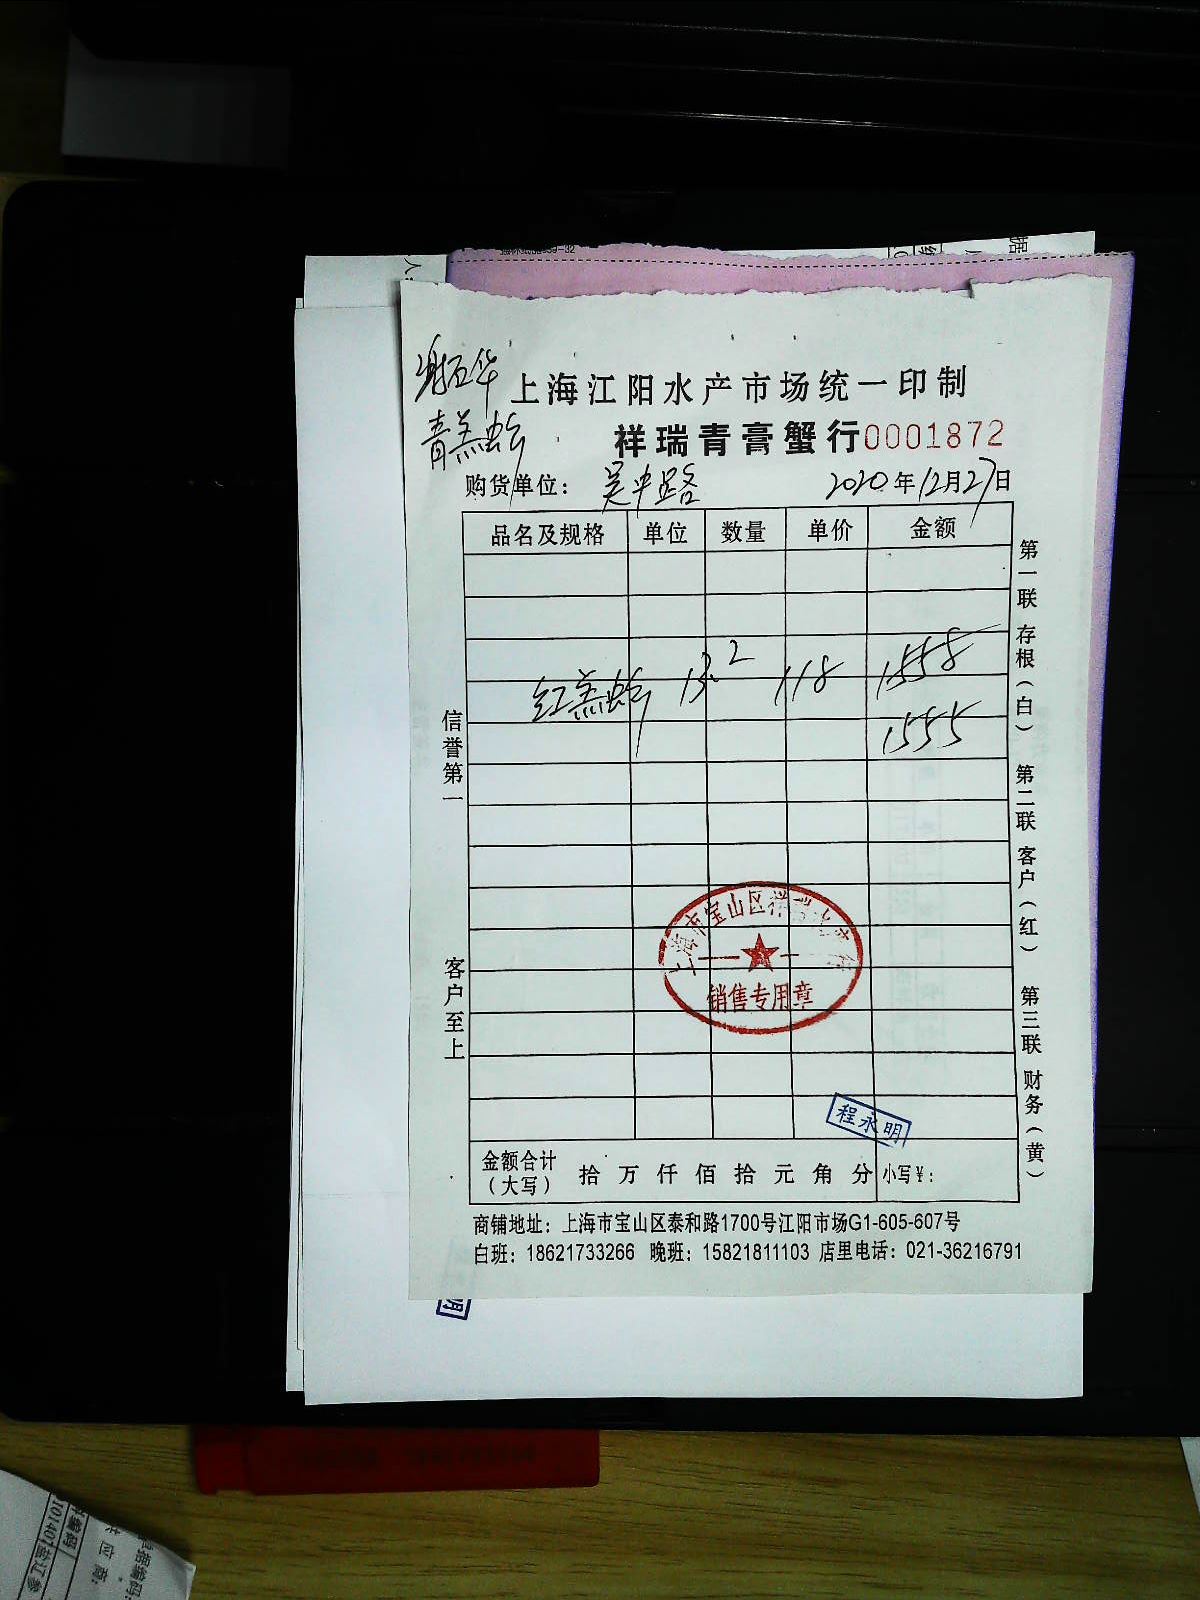 上海江阳水产市场统一印制
祥瑞青膏蟹行0001872
购货单位： 吴中路 2020年12月27日
品名及规格 单位 数量 单价 金额
红羔 13.2 118 1558
1555
信誉第一
客户至上
第一联 存根（白） 第二联 客户（红） 第三联 财务（黄）
上海市宝山区祥
销售专用章
程永明
金额合计（大写） 拾 万 仟 佰 拾 元 角 分 小写￥：
商铺地址：上海市宝山区泰和路1700号江阳市场G1-605-607号
白班：18621733266 晚班：15821811103 店里电话：021-36216791